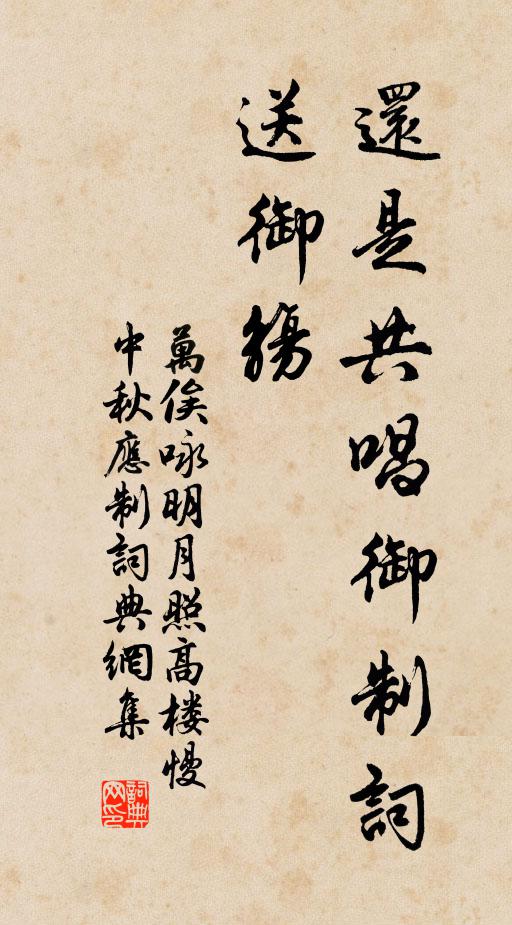 還是共唱御制詞
送御觴
萬俟咏明月照高楼慢
中秋應制詞典網集
詞典网印